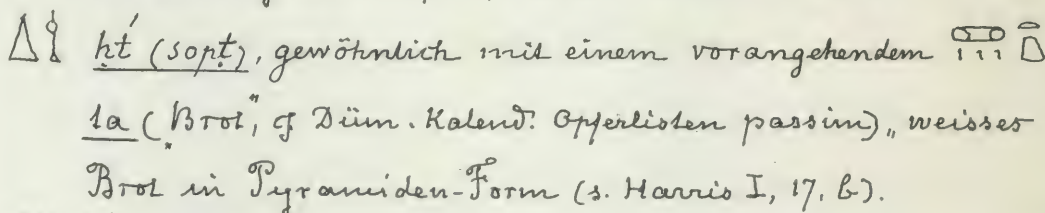 ḥt́ (sopṭ), gewöhnlich mit einem vorangehendem
ta („Brot“, cf Düm. Kalend. Opferlisten passim) „weisses
Brot in Pyramiden-Form (s. Harris I, 17, b).